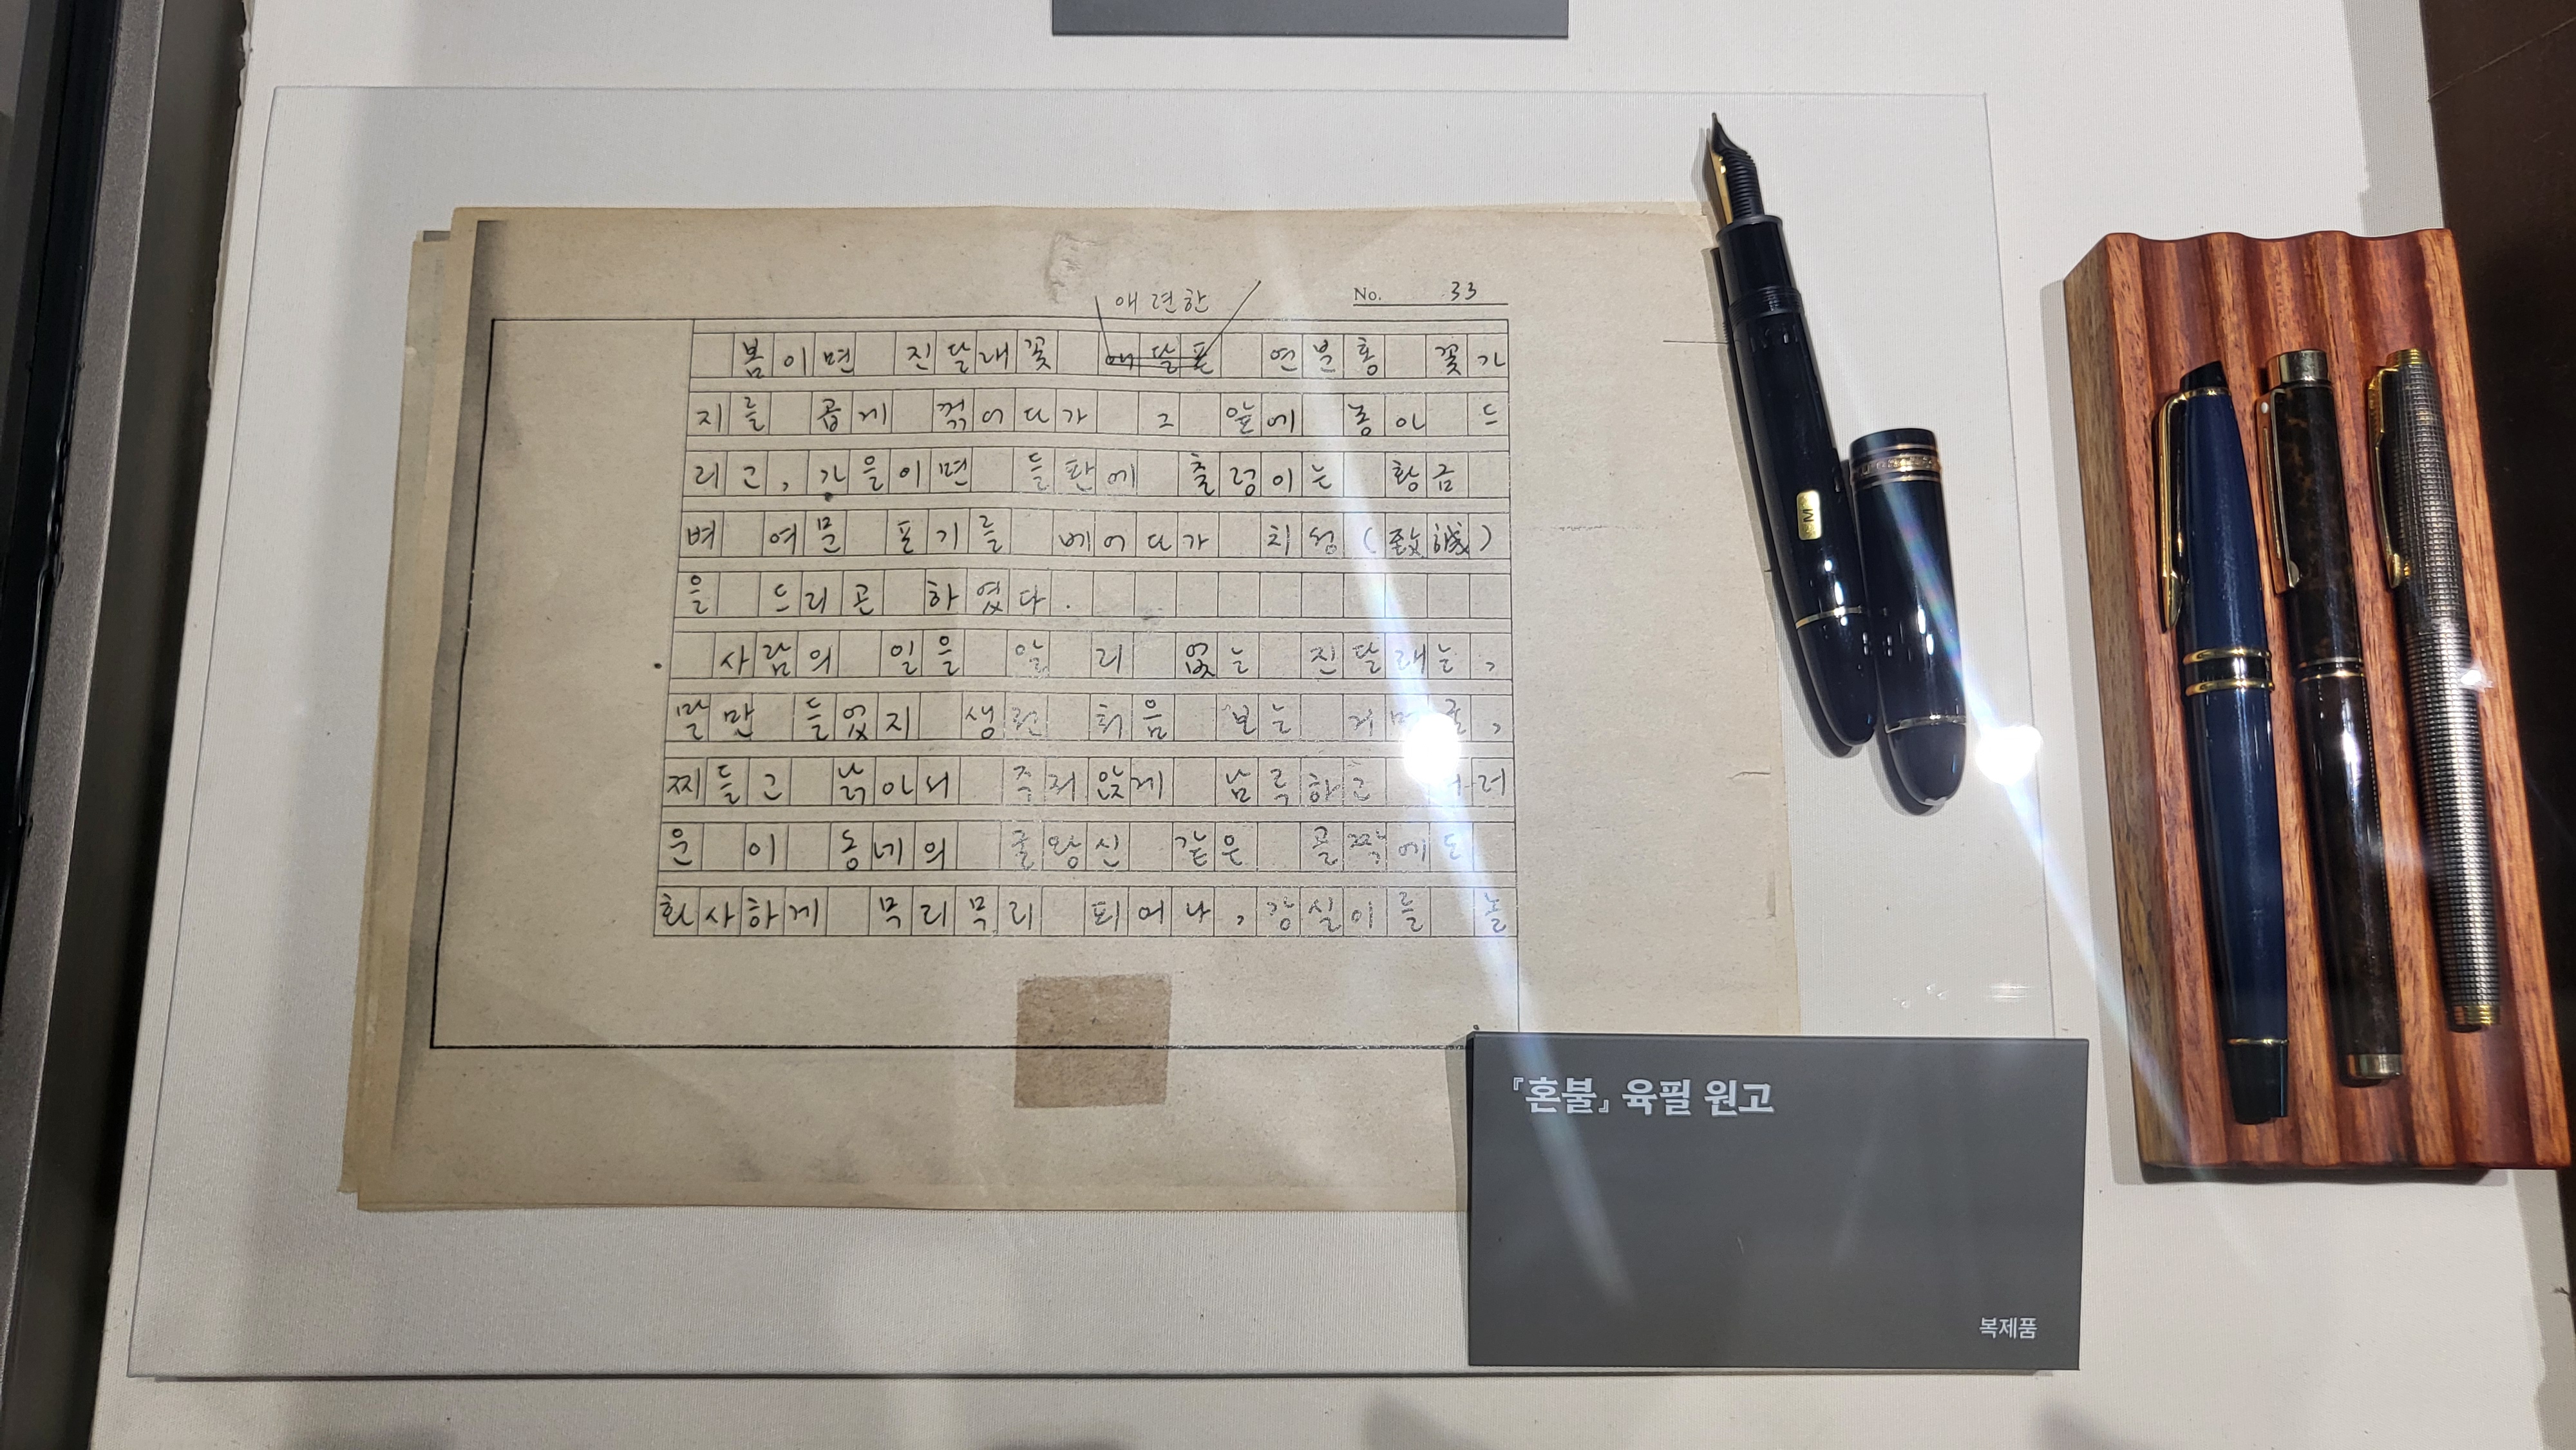 애련한
No. 33
봄이면 진달래꽃 애달픈 연분홍 꽃가
지를 곱게 꺾어다가 그 앞에 놓아 드
리고, 가을이면 들판에 출렁이는 황금
벼 여문 포기를 베어다가 치성(致誠)
을 드리곤 하였다.
사람의 일을 알 리 없는 진달래는,
말만 들었지 생전 처음 보는 거멍굴,
찌들고 낡아서 주저앉게 남루하고
운 이 동네의 굴왕신 같은 골짝에도
화사하게 무리무리 피어나, 강실이를 놀
M
『혼불』 육필 원고
복제품